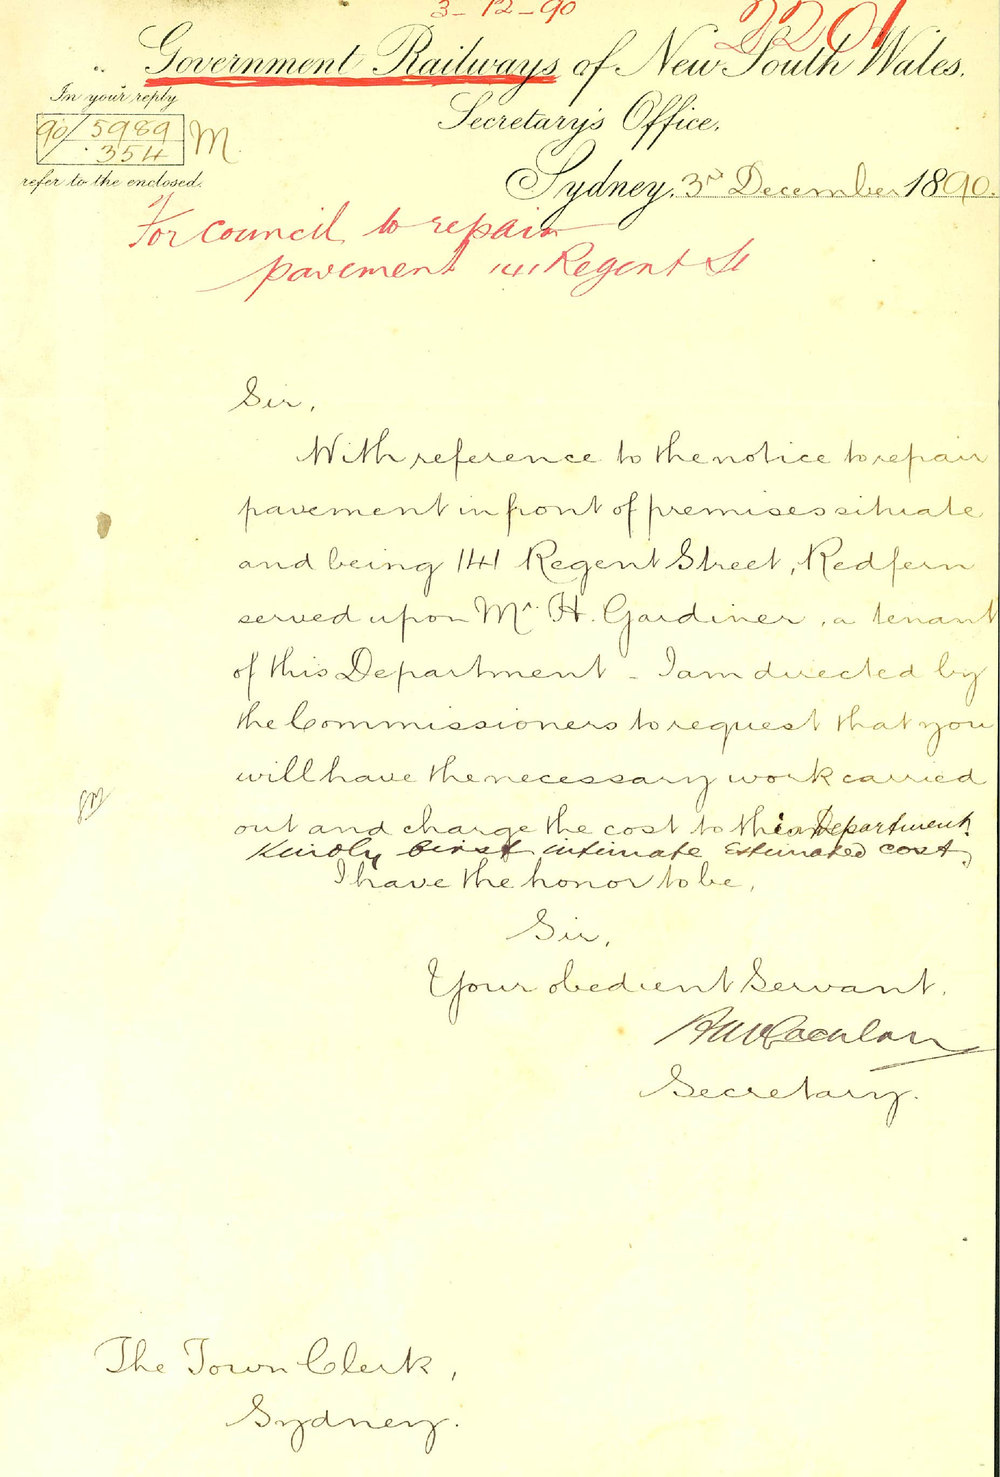 3-12-90
2201
Government Railways of New South Wales.
In your reply
Secretary's Office.
90/5989 M
354
refer to the enclosed.
Sydney, 3rd December 1890.
For council to repair
pavement 141 Regent St
Sir,
With reference to the notice to repair
pavement in front of premises situate
and being 141 Regent Street, Redfern
served upon Mr. H. Gardiner, a tenant
of this Department - I am directed by
the Commissioners to request that you
will have the necessary work carried
out and charge the cost to this Department.
Kindly first intimate Estimated cost.
I have the honor to be,
Sir,
Your obedient Servant.
H McLachlan
Secretary.
The Town Clerk,
Sydney.